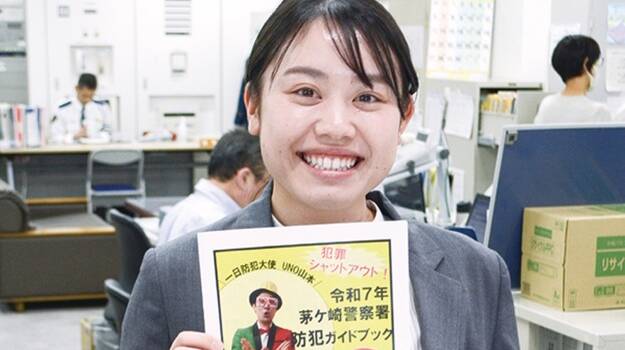 犯罪
シャットアウト!
一日防犯大使 UNO山本
令和7年
茅ケ崎警察署
防犯ガイドブック
リサイ